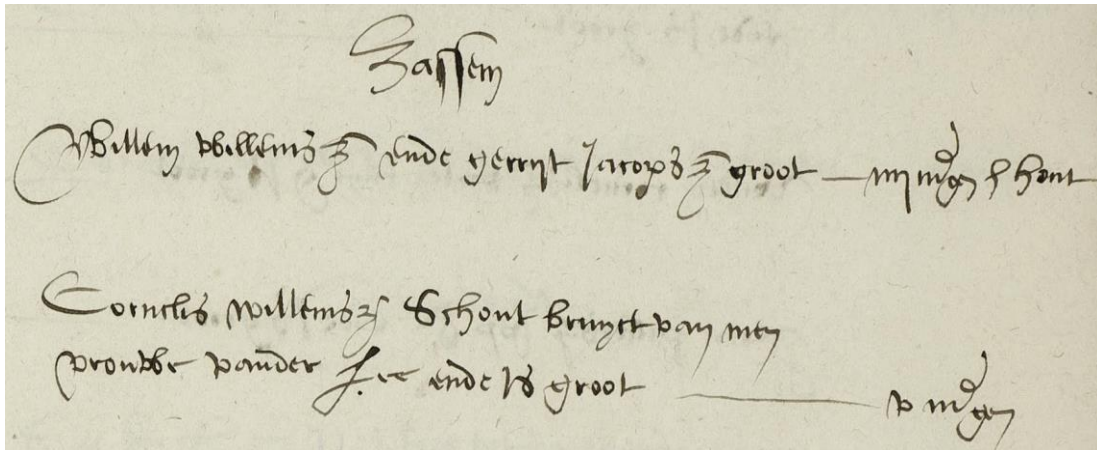 Sassem
Willem Willemsz ende gerrijt Jacopsz groot — iiij m͏gen hont
Cornelis willemsz Schout bruyct van men
vrouwe vander Lee ende is groot — v m͏gen